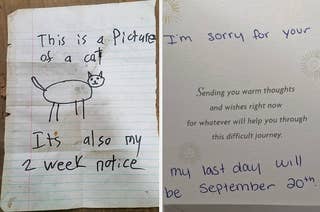 This is a Picture
of a cat
Its also my
2 week notice
I'm sorry for your
Sending you warm thoughts
and wishes right now
for whatever will help you through
this difficult journey.
my last day will
be September 20th.